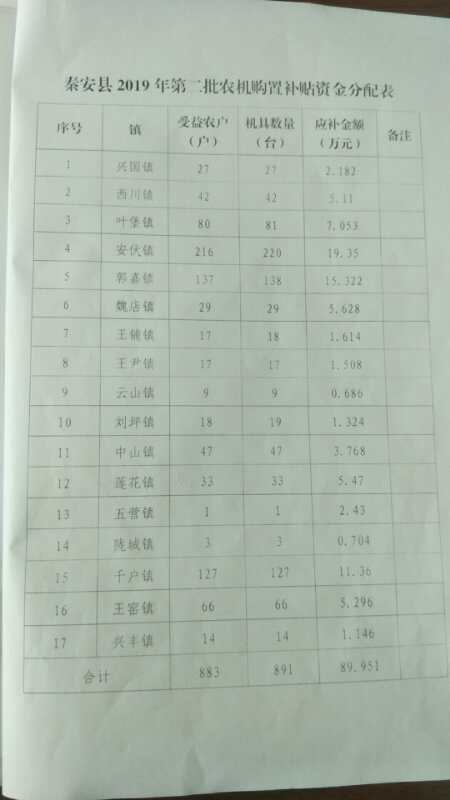 秦安县 2019 年第二批农机购置补贴资金分配表
序号 镇 受益农户 机具数量 应补金额 备注
（户） （台） （万元）
1 兴国镇 27 27 2.182
2 西川镇 42 42 5.11
3 叶堡镇 80 81 7.053
4 安伏镇 216 220 19.35
5 郭嘉镇 137 138 15.322
6 魏店镇 29 29 5.628
7 王铺镇 17 18 1.614
8 王尹镇 17 17 1.508
9 云山镇 9 9 0.686
10 刘坪镇 18 19 1.324
11 中山镇 47 47 3.768
12 莲花镇 33 33 5.47
13 五营镇 1 1 2.43
14 陇城镇 3 3 0.704
15 千户镇 127 127 11.36
16 王窑镇 66 66 5.296
17 兴丰镇 14 14 1.146
合计 883 891 89.951